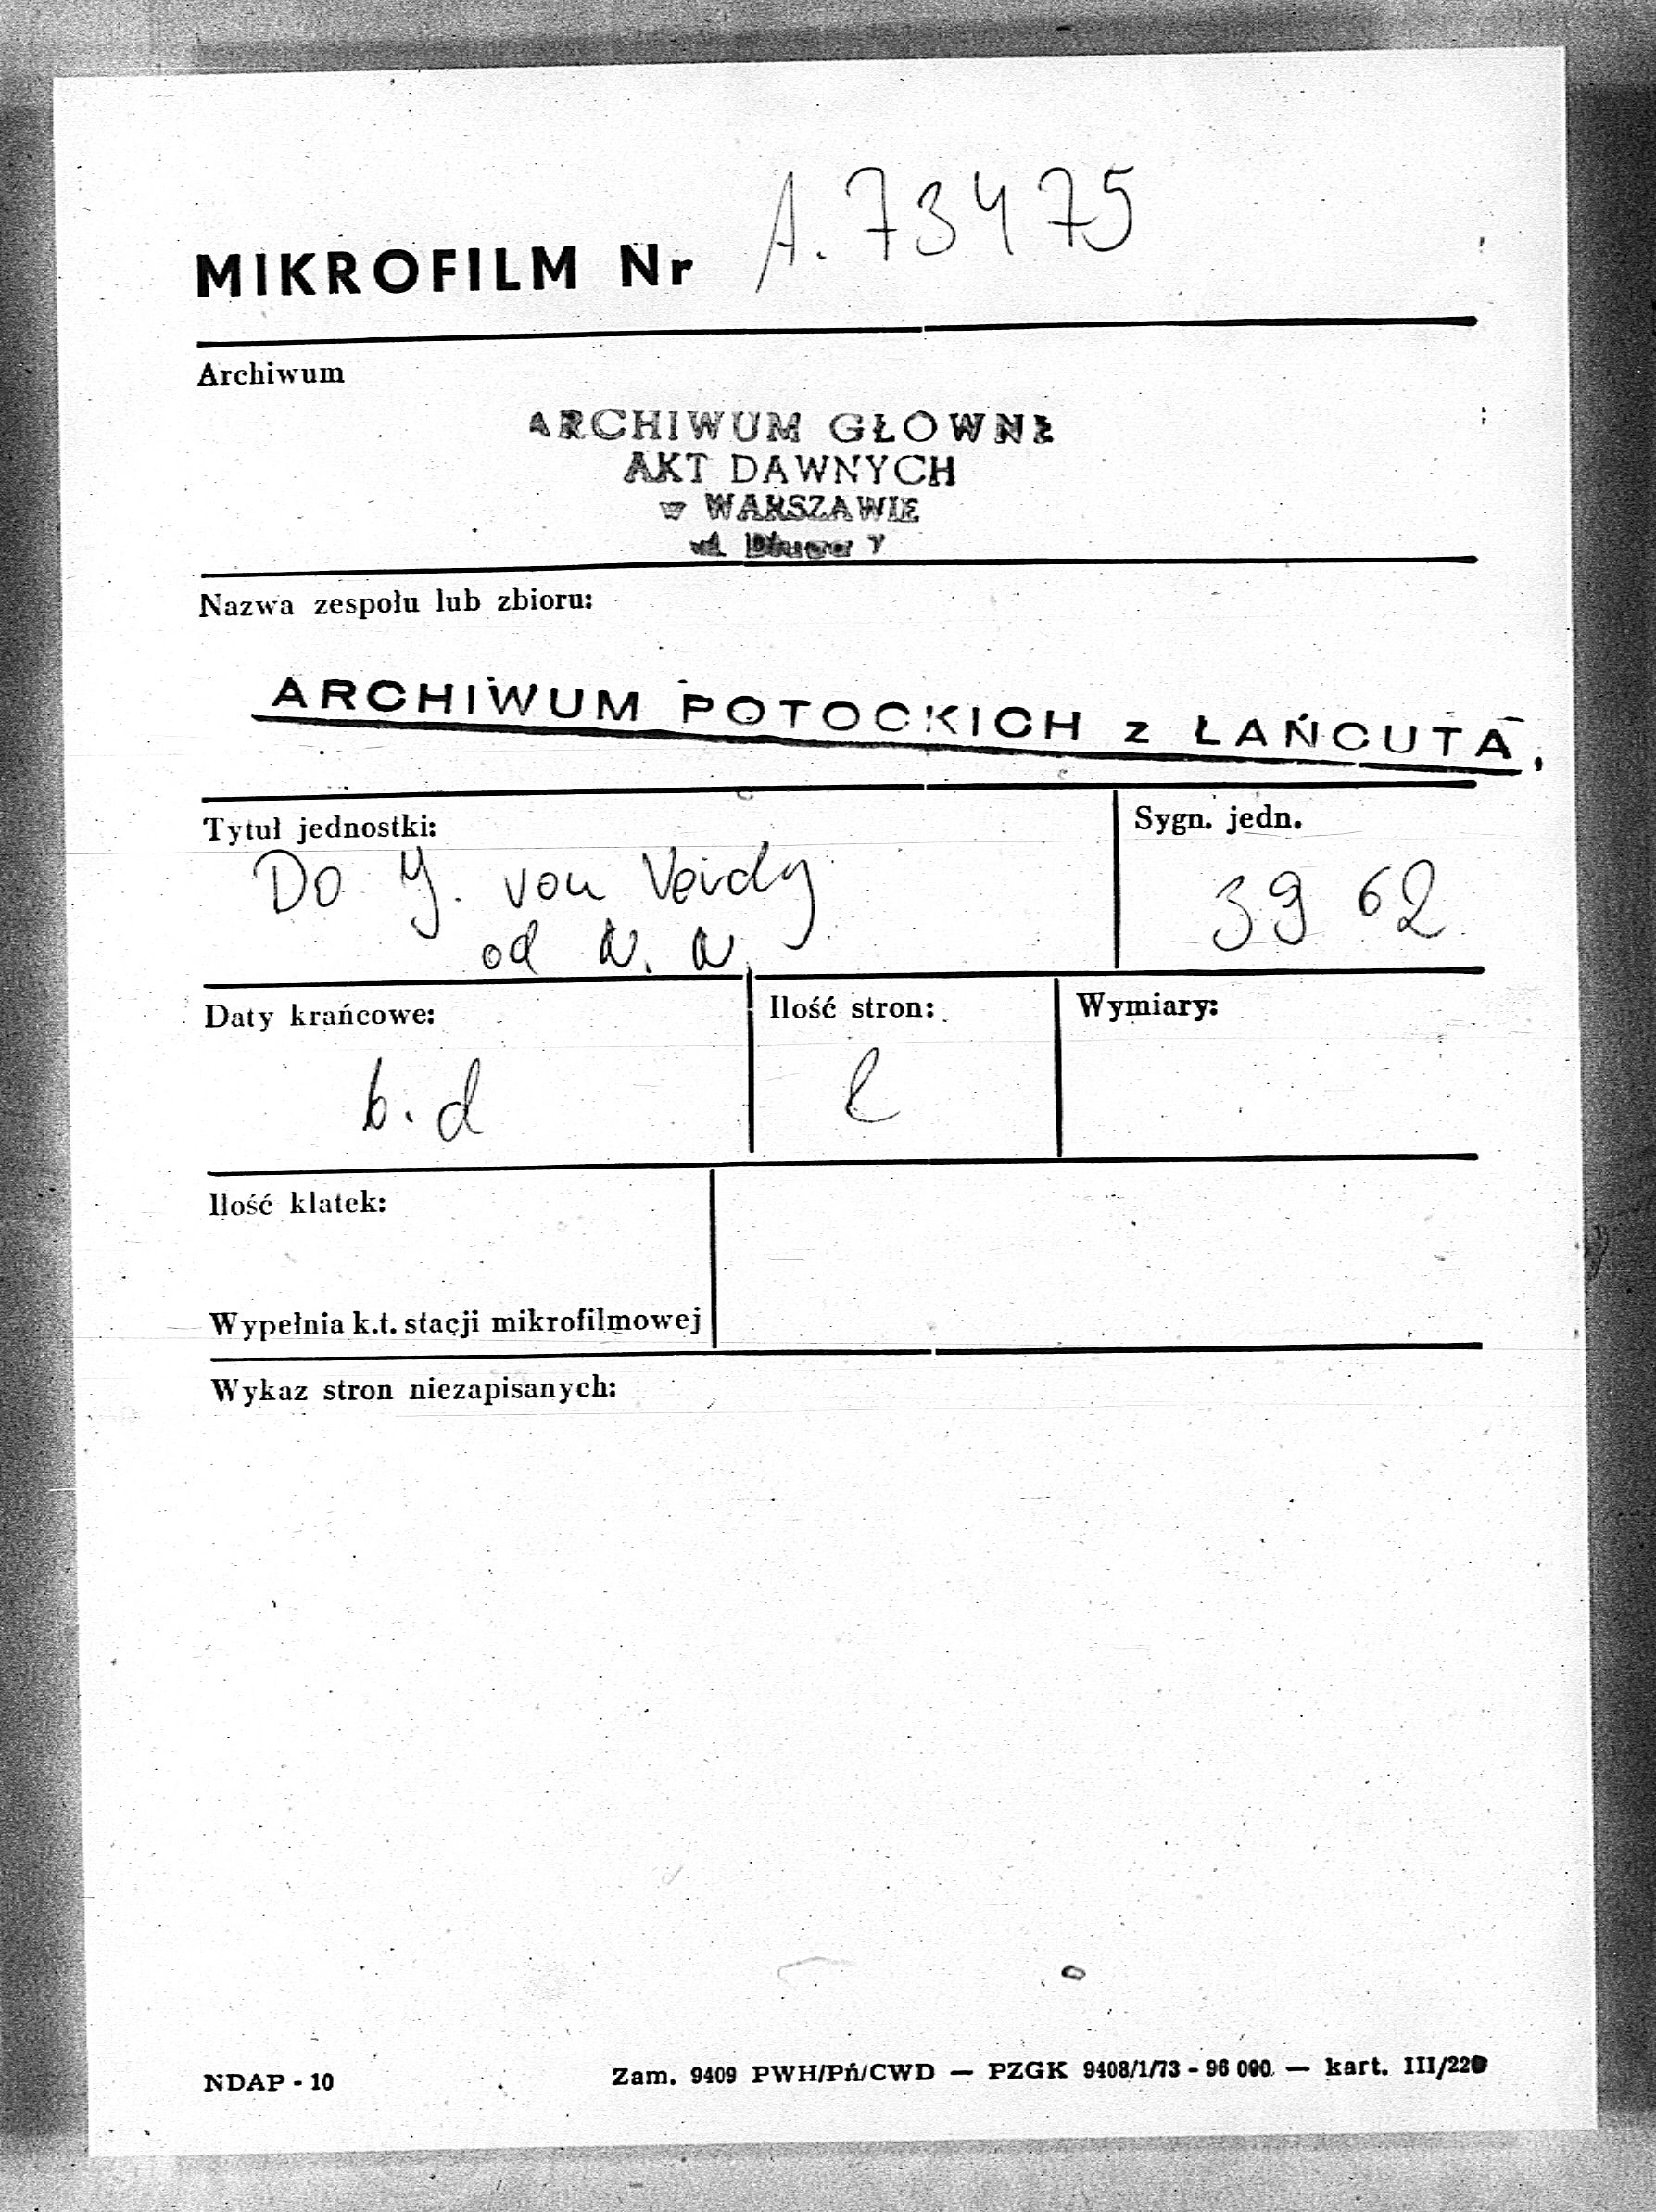 MIKROFILM Nr A. 73475
Archiwum
ARCHIWUM GŁÓWNE
AKT DAWNYCH
w WARSZAWIE
ul. Długa 7
Nazwa zespołu lub zbioru:
ARCHIWUM POTOCKICH z ŁAŃCUTA
Tytuł jednostki:
Sygn. jedn.
Do J. von Verdy
3962
od N. N.
Daty krańcowe:
Ilość stron:
Wymiary:
b.d
Ilość klatek:
Wypełnia k.t. stacji mikrofilmowej
Wykaz stron niezapisanych:
NDAP - 10
Zam. 9409 PWH/Pń/CWD — PZGK 9408/1/73 - 96 000 — kart. III/220